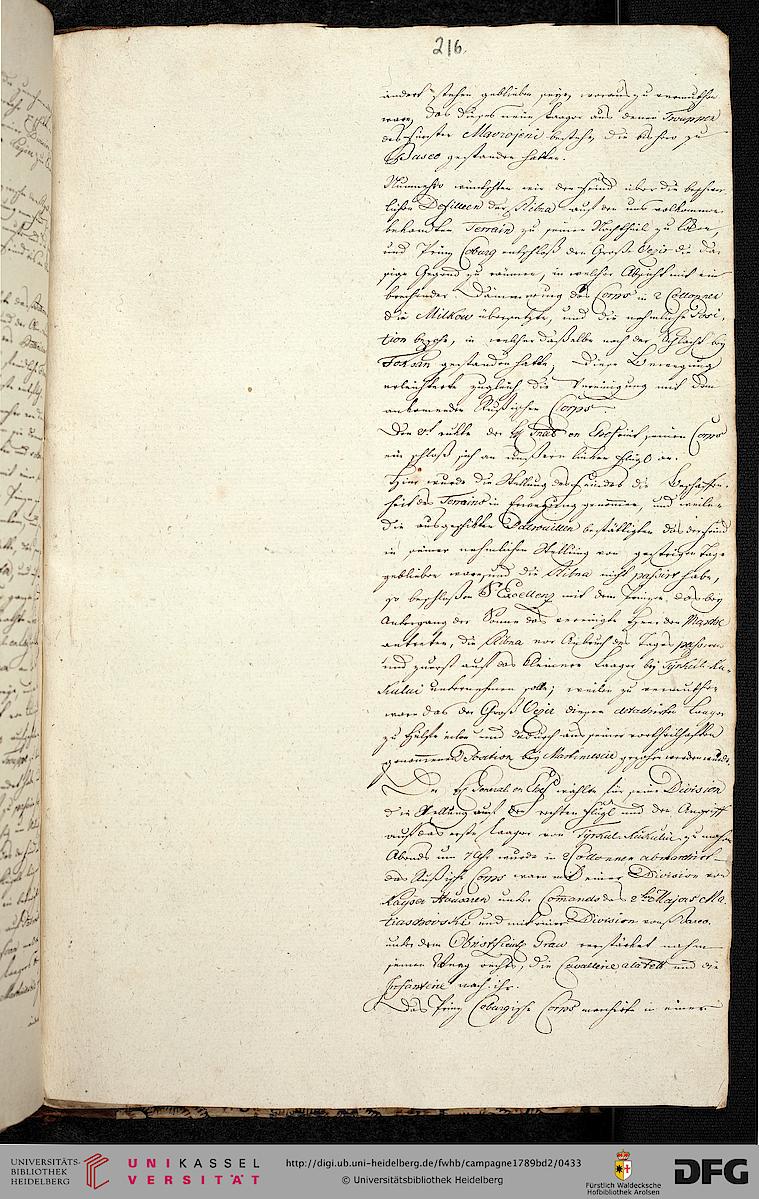 216.
anderst stehen geblieben seye, woraus zu vermuthen
ware, das dieses neue Laager aus denen Trouppen
des Fürsten Mavrojeni bestehe, die bisher zu
Buseo gestanden hatten.
Nunmehro wünschten wir den Feind über die beschwer-
lichen Defilleen der Ribna auf den uns vollkommen
bekandten Terrain zu seinen Nachtheil zu loken,
und Prinz Coburg entschloß dem Große Vezir die da-
sige Gegend zu räumen, in welcher Absicht mit ein-
brechender Dämmerung das Corps in 2 Collonnen
die Milkow übersetzte, und die nehmliche Posi-
tion bezohe, in welcher dasselbe nach der Schlacht bey
Foksan gestanden hatte, diese Bewegung
erleichterte zugleich die Vereinigung mit dem
ankomenden Rußischen Corps.
Den 8t. rükte der H. Gral en Chef mit seinen Corps
ein schloß sich an unsern linken Flügl an.
Hier wurde die Stellung des Feindes die Beschaffen-
heit des Terrains in Erwegung genommen, und weilen
die ausgeschikten Patrouillen bestättigten das der Feind
in seiner nehmlichen Stellung von gestrigen Tage
geblieben ware, und die Ribna nicht passirt habe,
so beschloßen S. Excellenz mit dem Prinzen, das bey
Untergang der Sonne das vereinigte Heer den Marsche
antretten, die Ribna vor Anbruch des Tages passiren
und zuerst auf das kleinere Laager bey Tyrkul-Ku-
kului unternehmen solle; weilen zu vermuthen
ware das der Groß Vezir diesen detachirten Laager
zu Hülfe eilen und dadurch aus seiner vortheilhaften
genommenen Position bey Martinestie gezohen werden würde.
Der H. General en Chef wählte für seine Division
die Stellung auf den rechten Flügl und den Angriff
auf das erste Laager von Tyrkul-Kukului zu machen
Abends um 7 Uhr wurde in 2 Collonnen abmarchirt
das Rußische Corps ware mit einer Division von
Kayser Housaren unter Comando des Majors Ma-
tiaschovski und mit einer Division von Barco
unter dem Obristlieut. Graw verstärket nahm
seinen Weeg rechts, die Cavallerie a la tett und die
Infanterie nach ihr.
Das Prinz Coburgische Corps marchirte in einer
UNIVERSITÄTS-
BIBLIOTHEK
HEIDELBERG
UNIKASSEL
VERSITÄT
http://digi.ub.uni-heidelberg.de/fwhb/campagne1789bd2/0433
© Universitätsbibliothek Heidelberg
Fürstlich Waldecksche
Hofbibliothek Arolsen
DFG